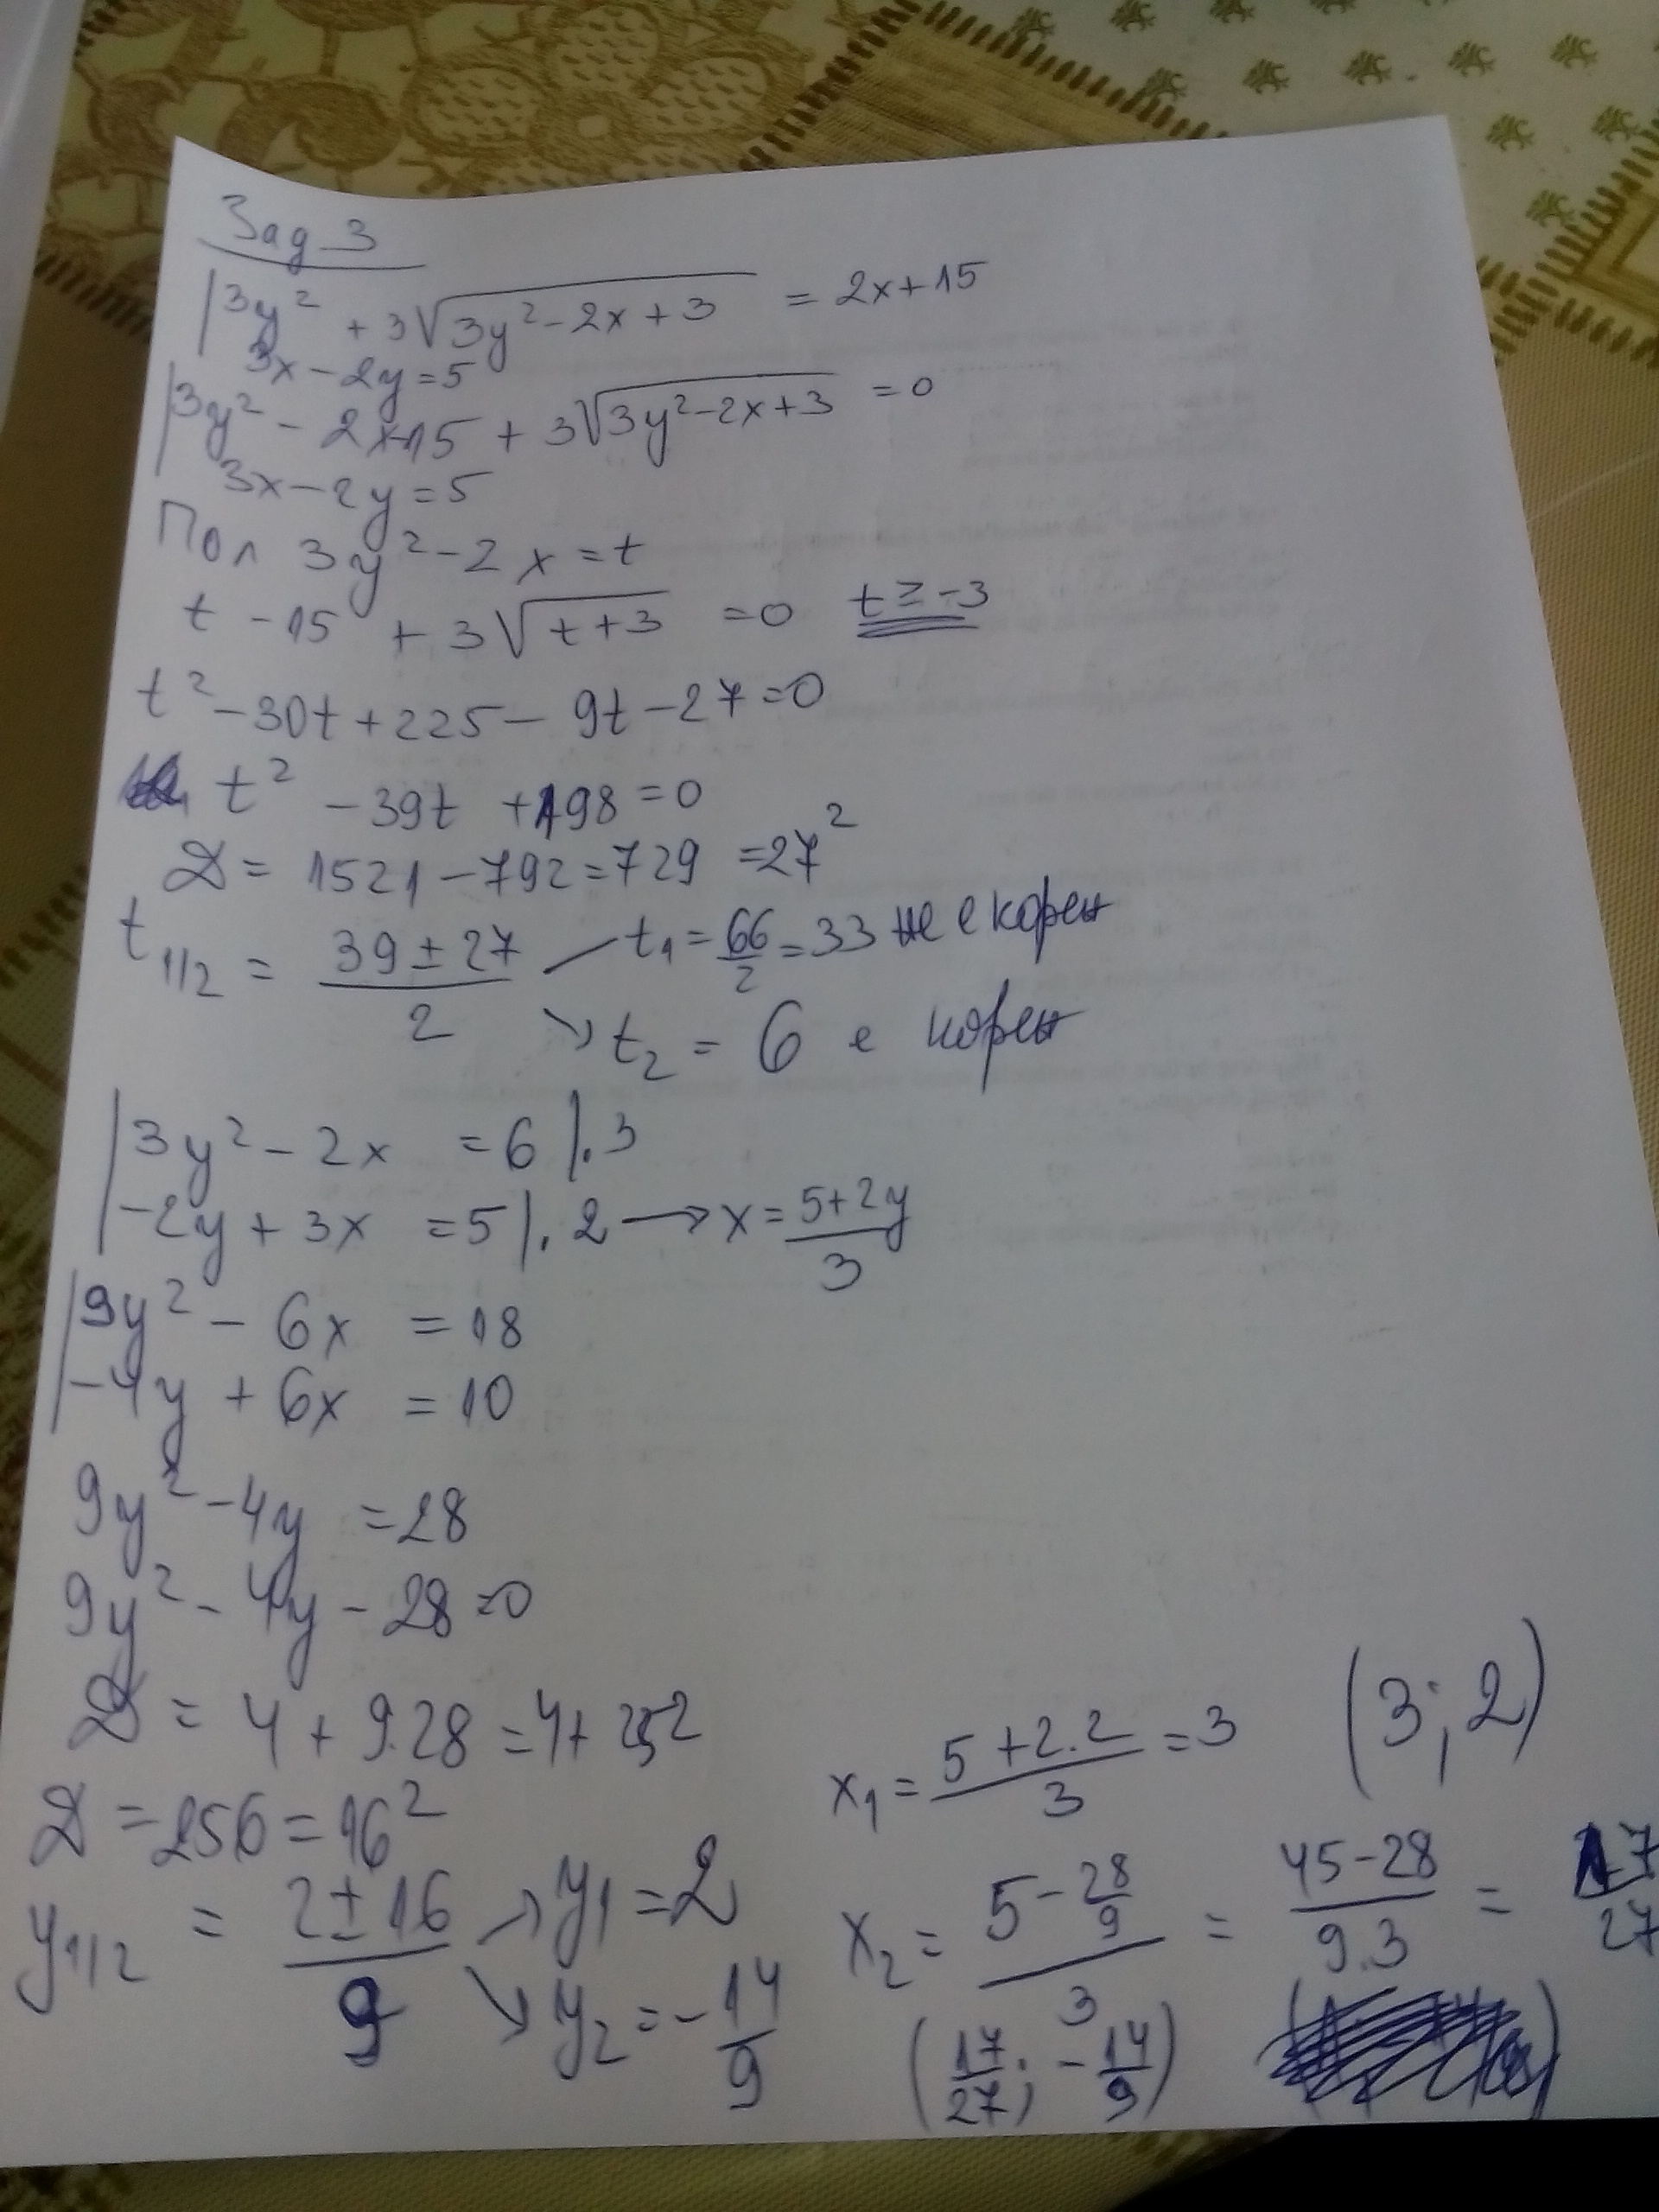 Зад 3
3y² + 3√(3y²-2x+3) = 2x+15
3x-2y=5
3y² - 2x-15 + 3√(3y²-2x+3) = 0
3x-2y=5
Пол 3y²-2x=t
t -15 + 3√(t+3) =0 t≥-3
t²-30t+225- 9t-27=0
t² -39t +198=0
D= 1521-792=729 =27²
t1/2 = (39±27)/2 t1=66/2=33 не е корен
t2 = 6 е корен
3y²-2x =6 |.3
-2y+3x =5 |.2 → x=(5+2y)/3
9y²-6x =18
-4y+6x =10
9y²-4y =28
9y²-4y-28=0
D = 4+9.28=4+252
D=256=16²
y1/2 = (2±16)/9 → y1=2
y2=-14/9
x1=(5+2.2)/3=3 (3;2)
x2=(5-28/9)/3 = (45-28)/9.3 = 17/27
(17/27; -14/9)